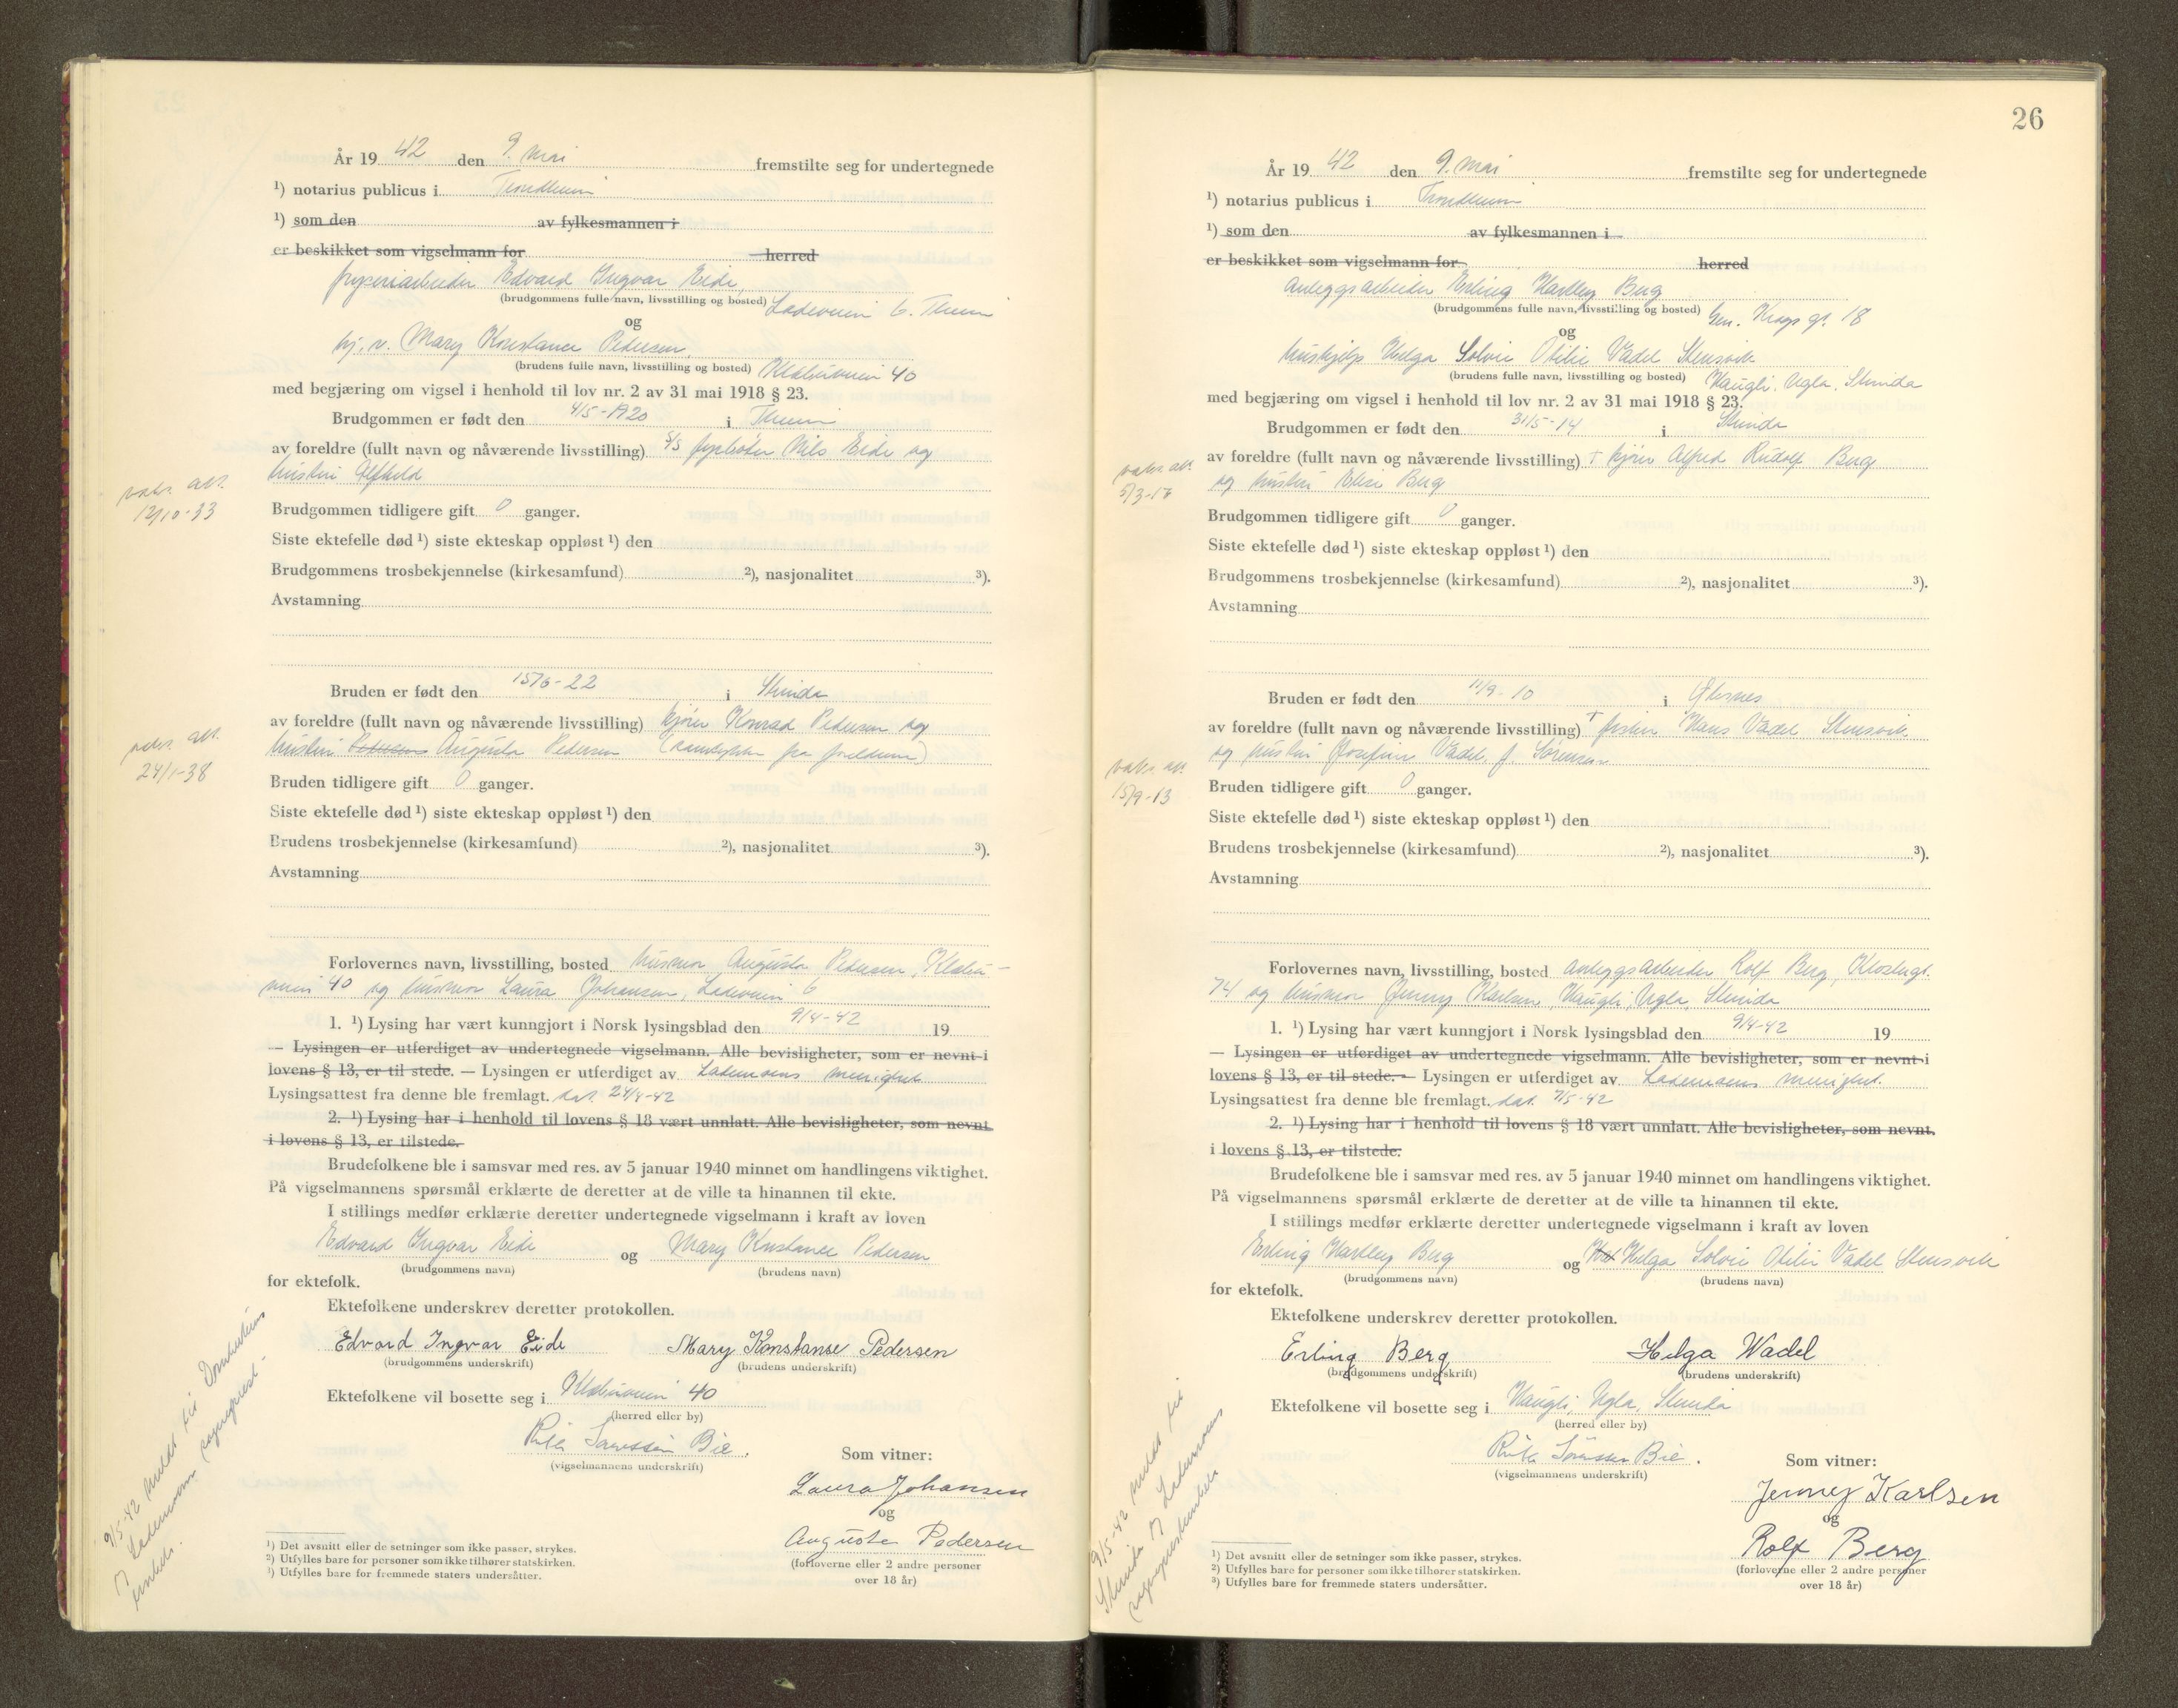 År 19 42 den 9. mai fremstilte seg for undertegnede
¹) notarius publicus i Trondheim
¹) som den av fylkesmannen i
er beskikket som vigselmann for herred
fryseriarbeider Edvard Ingvar Eide,
(brudgommens fulle navn, livsstilling og bosted) Ladeveien 6. Theim
og
hj. v. Mary Konstance Pedersen,
(brudens fulle navn, livsstilling og bosted) Klæbuveien 40
med begjæring om vigsel i henhold til lov nr. 2 av 31 mai 1918 § 23.
Brudgommen er født den 4/5-1920 i Theim
av foreldre (fullt navn og nåværende livsstilling) Nils Eide og
hustru Alfhild
vaks. att.
12/10-33
Brudgommen tidligere gift 0 ganger.
Siste ektefelle død ¹) siste ekteskap oppløst ¹) den
Brudgommens trosbekjennelse (kirkesamfund) ²), nasjonalitet ³).
Avstamning
Bruden er født den 15/6-22 i Strinda
av foreldre (fullt navn og nåværende livsstilling) kjører Konrad Pedersen og
hustru Augusta Pedersen (samtykke fra foreldrene)
vaks. att.
24/1-38
Bruden tidligere gift 0 ganger.
Siste ektefelle død ¹) siste ekteskap oppløst ¹) den
Brudens trosbekjennelse (kirkesamfund) ²), nasjonalitet ³).
Avstamning
Forlovernes navn, livsstilling, bosted husmor Augusta Pedersen, Klæbu-
veien 40 og husmor Laura Johansen, Ladeveien 6
1. ¹) Lysing har vært kunngjort i Norsk lysingsblad den 9/4-42 19
— Lysingen er utferdiget av undertegnede vigselmann. Alle bevisligheter, som er nevnt i
lovens § 13, er til stede. — Lysingen er utferdiget av Lademoens menighet
Lysingsattest fra denne ble fremlagt. dat. 24/4-42
2. ¹) Lysing har i henhold til lovens § 18 vært unnlatt. Alle bevisligheter, som nevnt
i lovens § 13, er tilstede.
Brudefolkene ble i samsvar med res. av 5 januar 1940 minnet om handlingens viktighet.
På vigselmannens spørsmål erklærte de deretter at de ville ta hinannen til ekte.
I stillings medfør erklærte deretter undertegnede vigselmann i kraft av loven
Edvard Ingvar Eide og Mary Konstance Pedersen
(brudgommens navn) (brudens navn)
for ektefolk.
Ektefolkene underskrev deretter protokollen.
Edvard Ingvar Eide Mary Konstanse Pedersen
(brudgommens underskrift) (brudens underskrift)
Ektefolkene vil bosette seg i Klæbuveien 40
(herred eller by)
Rita Sørenssen Bie.
(vigselmannens underskrift)
Som vitner:
Laura Johansen
og
Augusta Pedersen
(forloverne eller 2 andre personer
over 18 år)
9/5-42 meldt til Domkirkens
og Lademoen sogneprest-
embeder.
¹) Det avsnitt eller de setninger som ikke passer, strykes.
²) Utfylles bare for personer som ikke tilhører statskirken.
³) Utfylles bare for fremmede staters undersåtter.
26
År 19 42 den 9. mai fremstilte seg for undertegnede
¹) notarius publicus i Trondheim
¹) som den av fylkesmannen i
er beskikket som vigselmann for herred
anleggsarbeider Erling Hartley Berg
(brudgommens fulle navn, livsstilling og bosted) Gen. Krogs gt. 18
og
hushjelp Helga Solvei Otilie Vadel Stensvik
(brudens fulle navn, livsstilling og bosted) Haugli, Ugla, Strinda
med begjæring om vigsel i henhold til lov nr. 2 av 31 mai 1918 § 23.
Brudgommen er født den 31/5-14 i Strinda
av foreldre (fullt navn og nåværende livsstilling) † kjører Alfred Rudolf Berg
og hustru Elise Berg
vaks. att.
Brudgommen tidligere gift 0 ganger.
Siste ektefelle død ¹) siste ekteskap oppløst ¹) den
Brudgommens trosbekjennelse (kirkesamfund) ²), nasjonalitet ³).
Avstamning
Bruden er født den 11/9-10 i
av foreldre (fullt navn og nåværende livsstilling) † fisker Hans Vadel Stensvik
og hustru Josefine Vadel f. Sørensen
vaks. att.
15/9-13
Bruden tidligere gift 0 ganger.
Siste ektefelle død ¹) siste ekteskap oppløst ¹) den
Brudens trosbekjennelse (kirkesamfund) ²), nasjonalitet ³).
Avstamning
Forlovernes navn, livsstilling, bosted anleggsarbeider Rolf Berg, Klostergt.
74 og husmor Jenny Karlsen, Haugli, Ugla, Strinda
1. ¹) Lysing har vært kunngjort i Norsk lysingsblad den 9/4-42 19
— Lysingen er utferdiget av undertegnede vigselmann. Alle bevisligheter, som er nevnt i
lovens § 13, er til stede. — Lysingen er utferdiget av Lademoens menighet.
Lysingsattest fra denne ble fremlagt. dat. 7/5-42
2. ¹) Lysing har i henhold til lovens § 18 vært unnlatt. Alle bevisligheter, som nevnt.
i lovens § 13, er tilstede.
Brudefolkene ble i samsvar med res. av 5 januar 1940 minnet om handlingens viktighet.
På vigselmannens spørsmål erklærte de deretter at de ville ta hinannen til ekte.
I stillings medfør erklærte deretter undertegnede vigselmann i kraft av loven
Erling Hartley Berg og Helga Solvei Otilie Vadel Stensvik
(brudgommens navn) (brudens navn)
for ektefolk.
Ektefolkene underskrev deretter protokollen.
Erling Berg Helga Wadel
(brudgommens underskrift) (brudens underskrift)
Ektefolkene vil bosette seg i Haugli, Ugla, Strinda
(herred eller by)
Rita Sørenssen Bie.
(vigselmannens underskrift)
Som vitner:
Jenney Karlsen
og
Rolf Berg
(forloverne eller 2 andre personer
over 18 år)
9/5-42 meldt til
Strinda og Lademoens
sogneprestembeder
¹) Det avsnitt eller de setninger som ikke passer, strykes.
²) Utfylles bare for personer som ikke tilhører statskirken.
³) Utfylles bare for fremmede staters undersåtter.